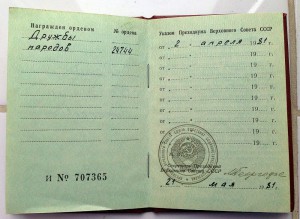 Награжден орденом № ордена
Дружбы
народов 24744
И № 707365
Указом Президиума Верховного Совета СССР
от 2 апреля 1981 г.
от 19 г.
от 19 г.
от 19 г.
от 19 г.
от 19 г.
от 19 г.
от 19 г.
19 г.
19 г.
Секретарь Президиума
Верховного Совета СССР
21 мая 1981 г.